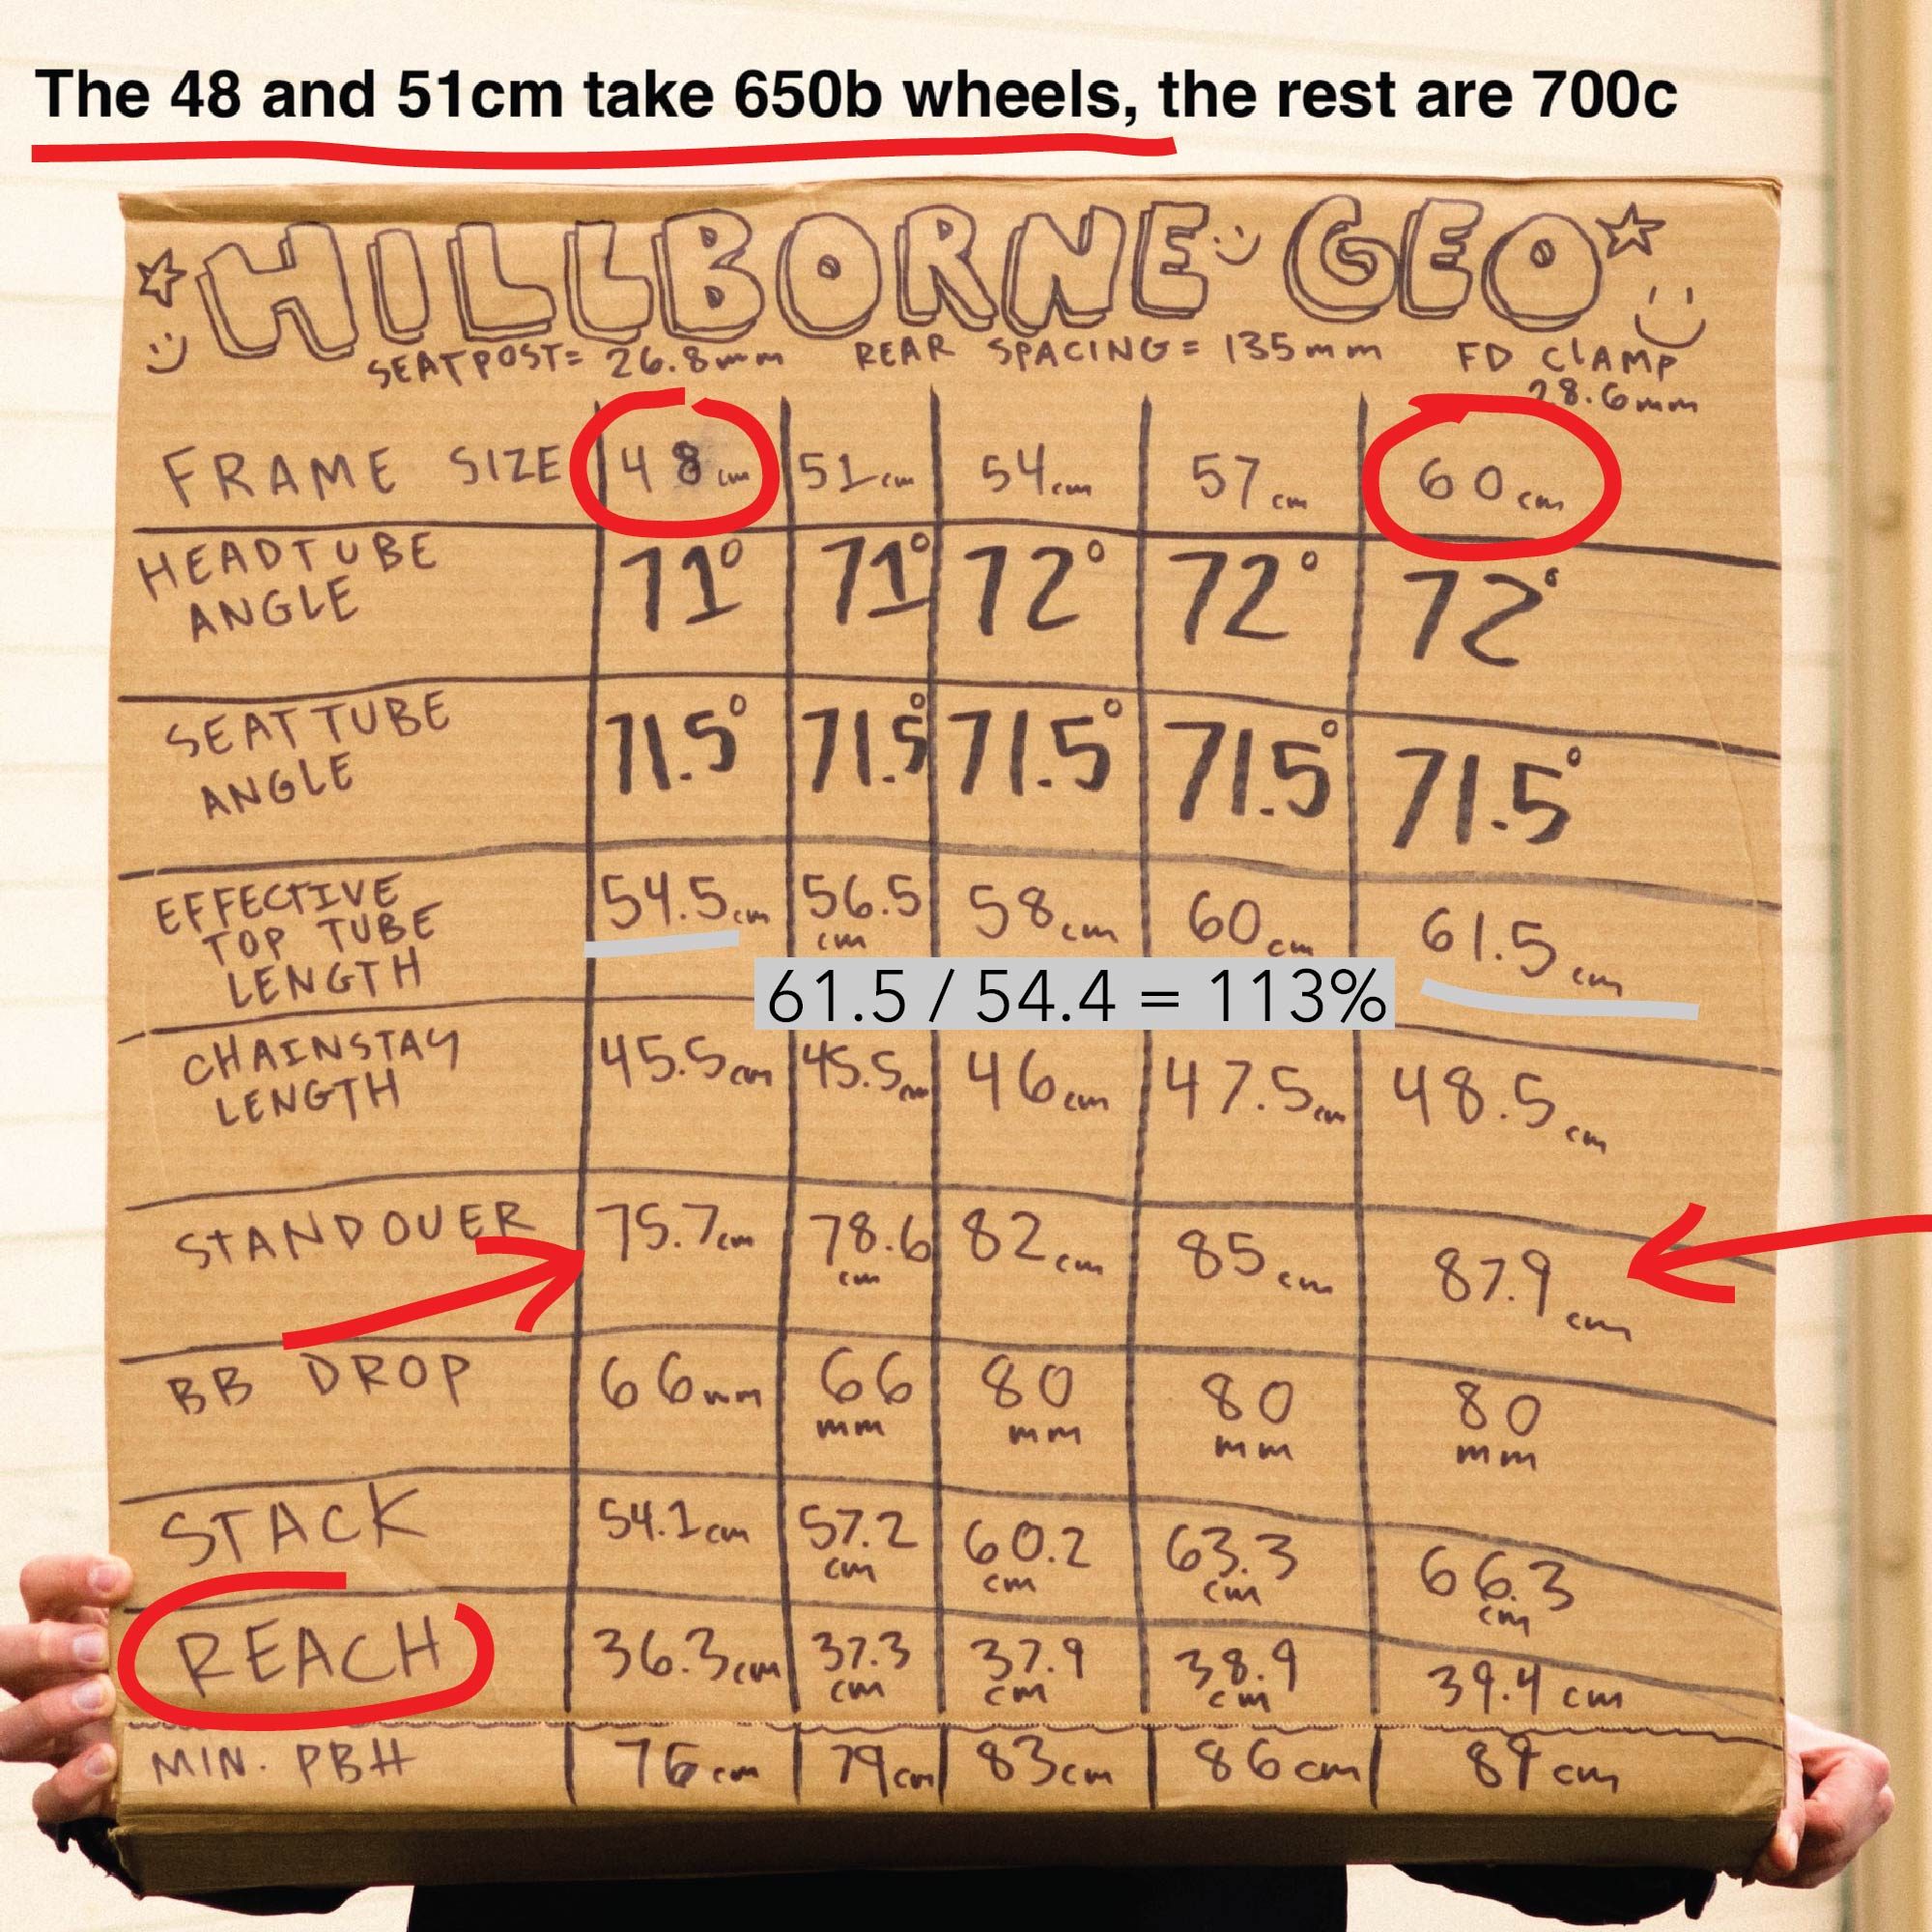 The 48 and 51cm take 650b wheels, the rest are 700c
HILLBORNE GEO
SEATPOST= 26.8mm REAR SPACING= 135mm FD CLAMP
28.6mm
FRAME SIZE 48cm 51cm 54cm 57cm 60cm
HEADTUBE
ANGLE 71° 71° 72° 72° 72°
SEAT TUBE
ANGLE 71.5° 71.5° 71.5° 71.5° 71.5°
EFFECTIVE
TOP TUBE
LENGTH 54.5cm 56.5cm 58cm 60cm 61.5cm
61.5 / 54.4 = 113%
CHAINSTAY
LENGTH 45.5cm 45.5cm 46cm 47.5cm 48.5cm
STANDOVER 75.7cm 78.6cm 82cm 85cm 87.9cm
BB DROP 66mm 66mm 80mm 80mm 80mm
STACK 54.1cm 57.2cm 60.2cm 63.3cm 66.3cm
REACH 36.3cm 37.3cm 37.9cm 38.9cm 39.4cm
MIN. PBH 76cm 79cm 83cm 86cm 89cm